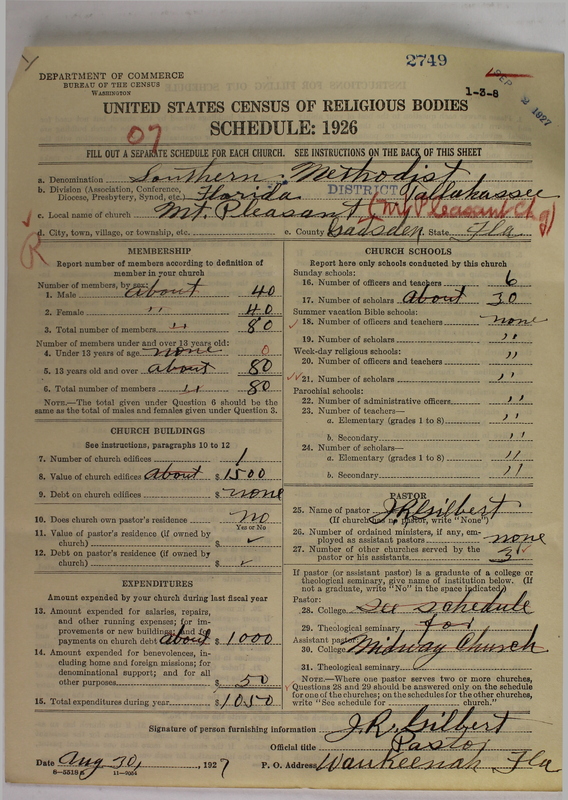 2749
DEPARTMENT OF COMMERCE
BUREAU OF THE CENSUS
WASHINGTON
1-3-8
SEP 2 1927
UNITED STATES CENSUS OF RELIGIOUS BODIES
SCHEDULE: 1926
07
FILL OUT A SEPARATE SCHEDULE FOR EACH CHURCH. SEE INSTRUCTIONS ON THE BACK OF THIS SHEET
a. Denomination Southern Methodist
b. Division (Association, Conference, Diocese, Presbytery, Synod, etc.) Florida DISTRICT Tallahassee
c. Local name of church Mt. Pleasant (Mt Pleasant Chg)
d. City, town, village, or township, etc. e. County Gadsden State Fla
R
MEMBERSHIP
Report number of members according to definition of member in your church
Number of members, by sex:
1. Male about 40
2. Female " 40
3. Total number of members " 80
Number of members under and over 13 years old:
4. Under 13 years of age none 0
5. 13 years old and over about 80
6. Total number of members " 80
NOTE.—The total given under Question 6 should be the same as the total of males and females given under Question 3.
CHURCH BUILDINGS
See instructions, paragraphs 10 to 12
7. Number of church edifices 1
8. Value of church edifices about $ 1500
9. Debt on church edifices $ none
10. Does church own pastor's residence No
Yes or No
11. Value of pastor's residence (if owned by church) $ ✓
12. Debt on pastor's residence (if owned by church) $ ✓
EXPENDITURES
Amount expended by your church during last fiscal year
13. Amount expended for salaries, repairs, and other running expenses; for improvements or new buildings; and for payments on church debt about $ 1000
14. Amount expended for benevolences, including home and foreign missions; for denominational support; and for all other purposes $ 50
15. Total expenditures during year $ 1050
CHURCH SCHOOLS
Report here only schools conducted by this church
Sunday schools:
16. Number of officers and teachers 6
17. Number of scholars about 30
Summer vacation Bible schools:
18. Number of officers and teachers none
19. Number of scholars "
Week-day religious schools:
20. Number of officers and teachers "
21. Number of scholars "
Parochial schools:
22. Number of administrative officers "
23. Number of teachers—
a. Elementary (grades 1 to 8) "
b. Secondary "
24. Number of scholars—
a. Elementary (grades 1 to 8) "
b. Secondary "
PASTOR
25. Name of pastor J.R. Gilbert
(If church has no pastor, write "None")
26. Number of ordained ministers, if any, employed as assistant pastors none
27. Number of other churches served by the pastor or his assistants 3
If pastor (or assistant pastor) is a graduate of a college or theological seminary, give name of institution below. (If not a graduate, write "No" in the space indicated)
Pastor:
28. College See schedule
29. Theological seminary for
Assistant pastor:
30. College Midway Church
31. Theological seminary
NOTE.—Where one pastor serves two or more churches, Questions 28 and 29 should be answered only on the schedule for one of the churches; on the schedules for the other churches, write "See schedule for church."
Signature of person furnishing information J.R. Gilbert
Official title Pastor
Date Aug 30, 1927 P. O. Address Waukeenah Fla